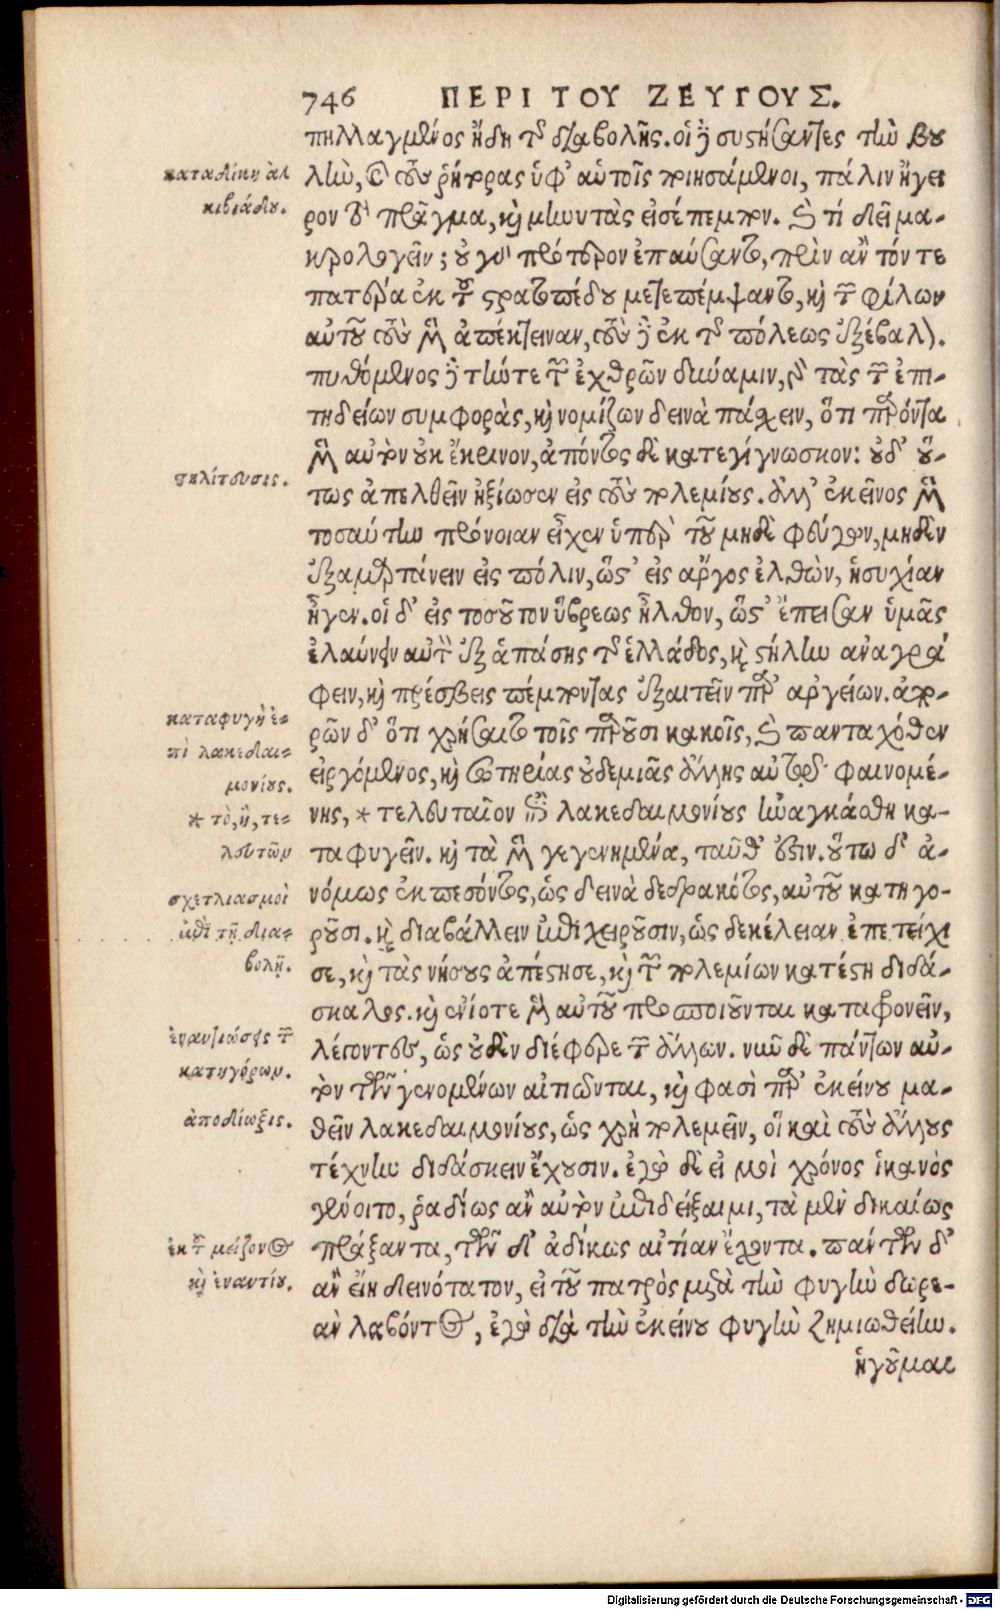 746 ΠΕΡΙ ΤΟΥ ΖΕΥΓΟΥΣ.
πηλλαγμένος ἤδη τῆς διαβολῆς. οἱ δὲ συστήσαντες τὴν βου
λὴν, καὶ τοὺς ῥήτορας ὑφ' αὑτοῖς ποιησάμενοι, πάλιν ἤγει
ρον τὸ πρᾶγμα, καὶ μηνυτὰς εἰσέπεμπον. καὶ τί δεῖ μα-
κρολογεῖν; οὐ γὰρ πρότερον ἐπαύσαντο, πρὶν ἂν τόν τε
πατέρα ἐκ τοῦ στρατοπέδου μετεπέμψαντο, καὶ τῶν φίλων
αὐτοῦ τοὺς μὲν ἀπέκτειναν, τοὺς δὲ ἐκ τῆς πόλεως ἐξέβαλον.
πυθόμενος δὲ τήν τε τῶν ἐχθρῶν δύναμιν, καὶ τὰς τῶν ἐπι-
τηδείων συμφορὰς, καὶ νομίζων δεινὰ πάσχειν, ὅτι παρόντα
μὲν αὐτὸν οὐκ ἔκρινον, ἀπόντος δὲ κατεγίγνωσκον: οὐδ' οὕ-
τως ἀπελθεῖν ἠξίωσεν εἰς τοὺς πολεμίους. ἀλλ' ἐκεῖνος μὲν
τοσαύτην πρόνοιαν εἶχεν ὑπὲρ τοῦ μηδὲ φεύγων, μηδὲν
ἐξαμαρτάνειν εἰς πόλιν, ὥστ' εἰς ἄργος ἐλθὼν, ἡσυχίαν
ἦγεν. οἱ δ' εἰς τοσοῦτον ὕβρεως ἦλθον, ὥστ' ἔπεισαν ὑμᾶς
ἐλαύνειν αὐτὸν ἐξ ἁπάσης τῆς ἑλλάδος, καὶ στήλην ἀναγρά
φειν, καὶ πρέσβεις πέμποντας ἐξαιτεῖν παρ' ἀργείων. ἀπο-
ρῶν δ' ὅτι χρήσαιτο τοῖς παροῦσι κακοῖς, καὶ πανταχόθεν
εἰργόμενος, καὶ σωτηρίας οὐδεμιᾶς ἄλλης αὐτῷ φαινομέ-
νης, * τελευταῖον ἐπὶ λακεδαιμονίους ἠναγκάσθη κα-
ταφυγεῖν. καὶ τὰ μὲν γεγενημένα, ταῦθ' ἐστιν. οὕτω δ' ἀ-
νόμως ἐκπεσόντος, ὡς δεινὰ δεδρακότος, αὐτοῦ κατηγο-
ροῦσι. καὶ διαβάλλειν ἐπιχειροῦσιν, ὡς δεκέλειαν ἐπετείχι
σε, καὶ τὰς νήσους ἀπέστησε, καὶ τῶν πολεμίων κατέστη διδά-
σκαλος. καὶ ἐνίοτε μὲν αὐτοῦ προσποιοῦνται καταφρονεῖν,
λέγοντες, ὡς οὐδὲν διέφερε τῶν ἄλλων. νυνὶ δὲ πάντων αὐ-
τὸν τῶν γενομένων αἰτιῶνται, καὶ φασὶ παρ' ἐκείνου μα-
θεῖν λακεδαιμονίους, ὡς χρὴ πολεμεῖν, οἳ καὶ τοὺς ἄλλους
τέχνην διδάσκειν ἔχουσιν. ἐγὼ δὲ εἰ μοὶ χρόνος ἱκανὸς
γένοιτο, ῥαδίως ἂν αὐτὸν ἐπιδείξαιμι, τὰ μὲν δικαίως
πράξαντα, τῶν δ' ἀδίκως αἰτίαν ἔχοντα. πάντων δ'
ἂν εἴη δεινότατον, εἰ τοῦ πατρὸς μετὰ τὴν φυγὴν δωρε-
ὰν λαβόντος, ἐγὼ διὰ τὴν ἐκείνου φυγὴν ζημιωθείην.
ἡγοῦμαι
καταδίκη ἀλ
κιβιάδου.
στηλίτευσις.
καταφυγὴ ἐ-
πὶ λακεδαι-
μονίους.
* τὸ, ἢ, τε-
λευτῶν
σχετλιασμοὶ
ἐπὶ τῇ δια-
βολῇ.
ἐναντιώσεις τῶν
κατηγόρων.
ἀποδίωξις.
ἐκ τοῦ μείζονος
καὶ ἐναντίου.
Digitalisierung gefördert durch die Deutsche Forschungsgemeinschaft - DFG